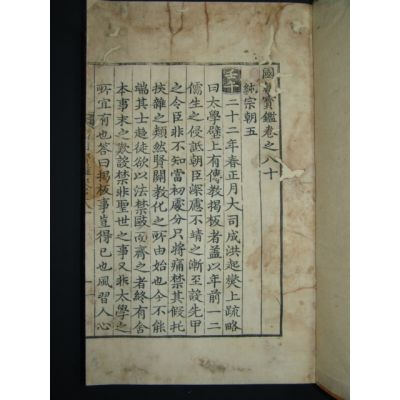 國朝寶鑑卷之八十
純宗朝五
壬午二十二年春正月大司成洪起燮上疏略
曰太學壁上有傳教揭板者蓋以年前一二
儒生之侵詆朝臣深慮不靖之漸至設先甲
之令臣非不知當初處分只將痛禁其假托
挾雜之類然賢關教化之所由始也今不能
端其士趨徒欲以法禁毆齋之者終有舍
本事末之歎設禁非聖世之事又非太學之
所宜有也答曰揭板事豈得已也風習人心